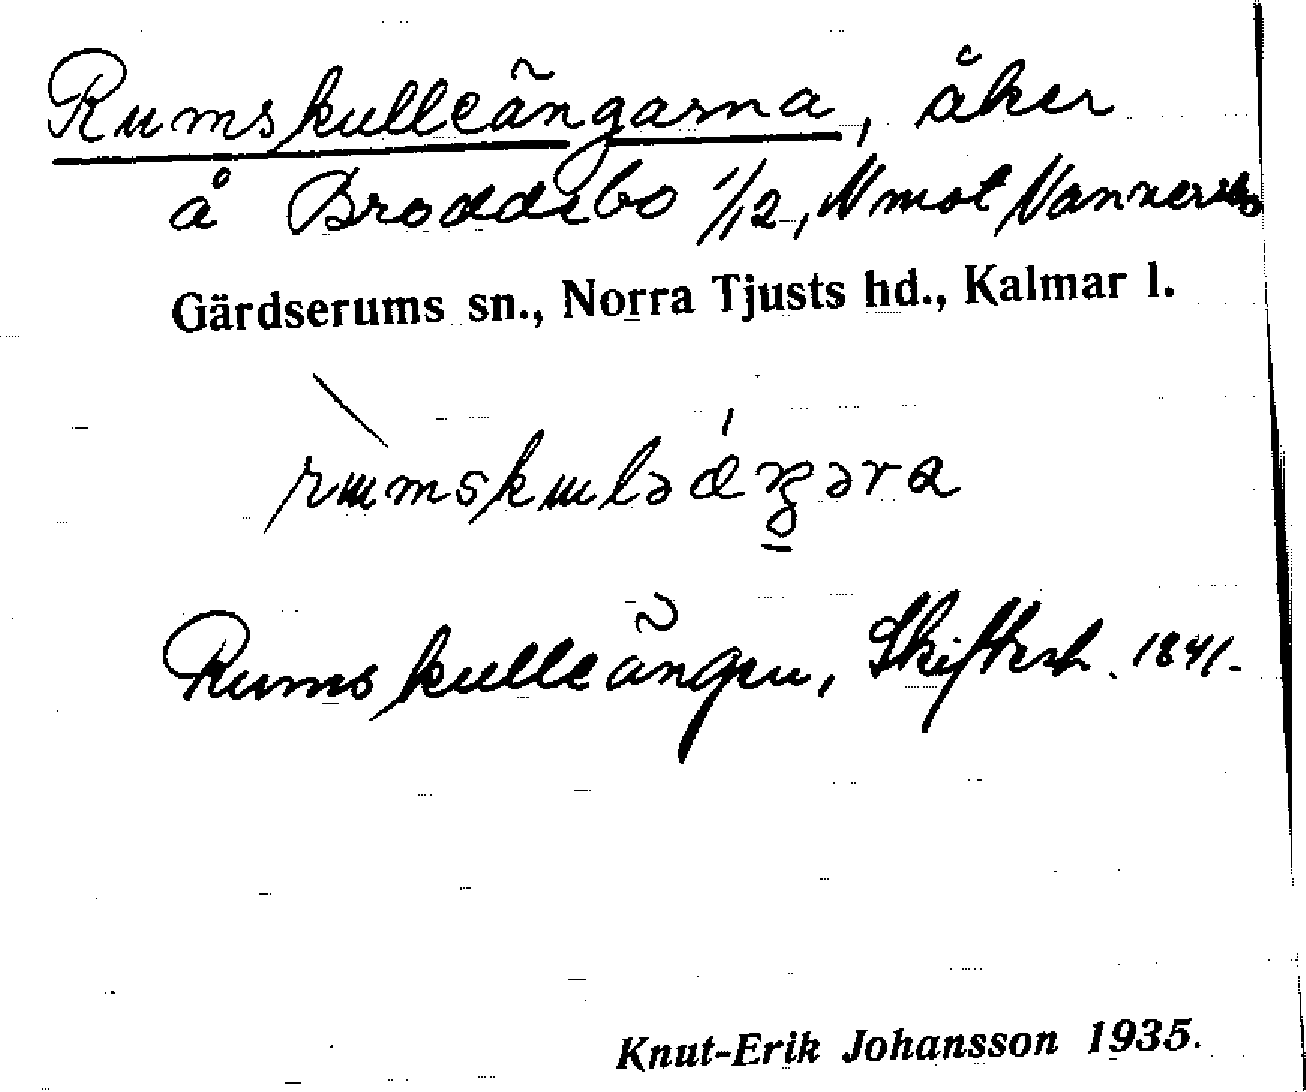 Rumskulleängarna, åker
å Broddebo 1/12, N mot Vannersbo
Gärdserums sn., Norra Tjusts hd., Kalmar l.
rɯmskɯləǽŋəra
Rumskulleängen, Skifteskt. 1841.
Knut-Erik Johansson 1935.